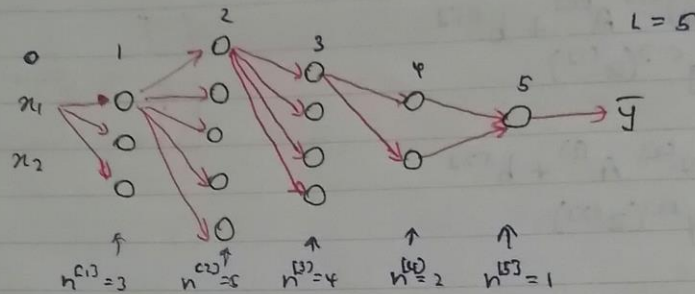 L = 5
0 1 2 3 4 5
x₁
x₂
ȳ
n[1]=3 n[2]=5 n[3]=4 n[4]=2 n[5]=1